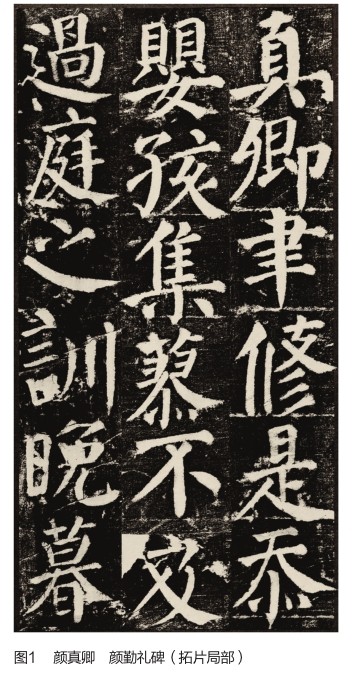 真卿聿修是忝
嬰孩集蓼不及
過庭之訓晚暮
图1 颜真卿 颜勤礼碑（拓片局部）